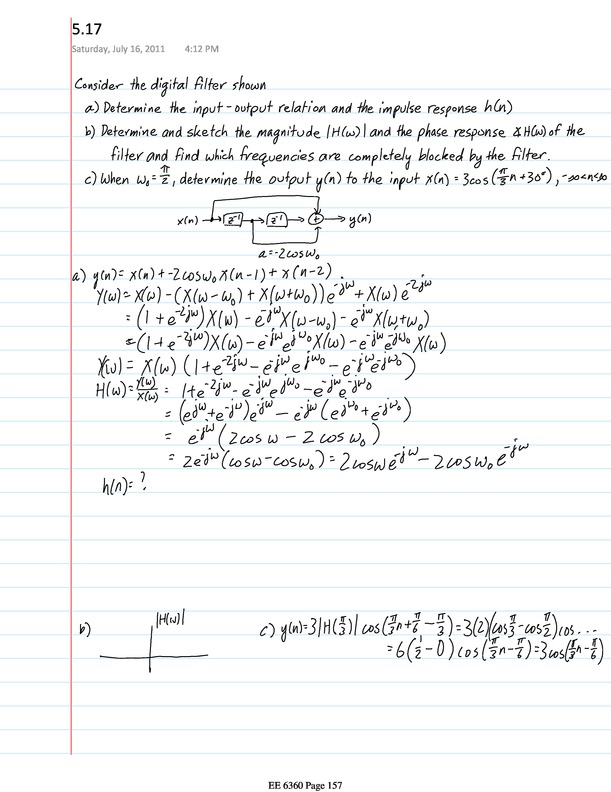 5.17
Saturday, July 16, 2011 4:12 PM
Consider the digital filter shown
a) Determine the input-output relation and the impulse response h(n)
b) Determine and sketch the magnitude |H(ω)| and the phase response ∡H(ω) of the
filter and find which frequencies are completely blocked by the filter.
c) When ω₀=π/2, determine the output y(n) to the input x(n)=3cos(π/3 n+30°), -∞<n<∞
x(n) z⁻¹ z⁻¹ + y(n)
a=-2cosω₀
a) y(n)= x(n)+-2cosω₀x(n-1)+x(n-2).
Y(ω)=X(ω)-(X(ω-ω₀)+X(ω+ω₀))e^-jω+X(ω)e^-2jω
=(1+e^-2jω)X(ω)-e^-jωX(ω-ω₀)-e^-jωX(ω+ω₀)
=(1+e^-2jω)X(ω)-e^-jωe^jω₀X(ω)-e^-jωe^-jω₀X(ω)
Y(ω)= X(ω)(1+e^-2jω-e^-jωe^jω₀-e^-jωe^-jω₀)
H(ω)=Y(ω)/X(ω)= 1+e^-2jω-e^-jωe^jω₀-e^-jωe^-jω₀
=(e^jω+e^-jω)e^-jω-e^-jω(e^jω₀+e^-jω₀)
= e^-jω(2cosω-2cosω₀)
= 2e^-jω(cosω-cosω₀)=2cosωe^-jω-2cosω₀e^-jω
h(n)=?
b) |H(ω)|
c) y(n)=3|H(π/3)|cos(π/3 n+π/6-π/3)=3(2)(cosπ/3-cosπ/2)cos...
=6(1/2-0)cos(π/3 n-π/6)=3cos(π/3 n-π/6)
EE 6360 Page 157